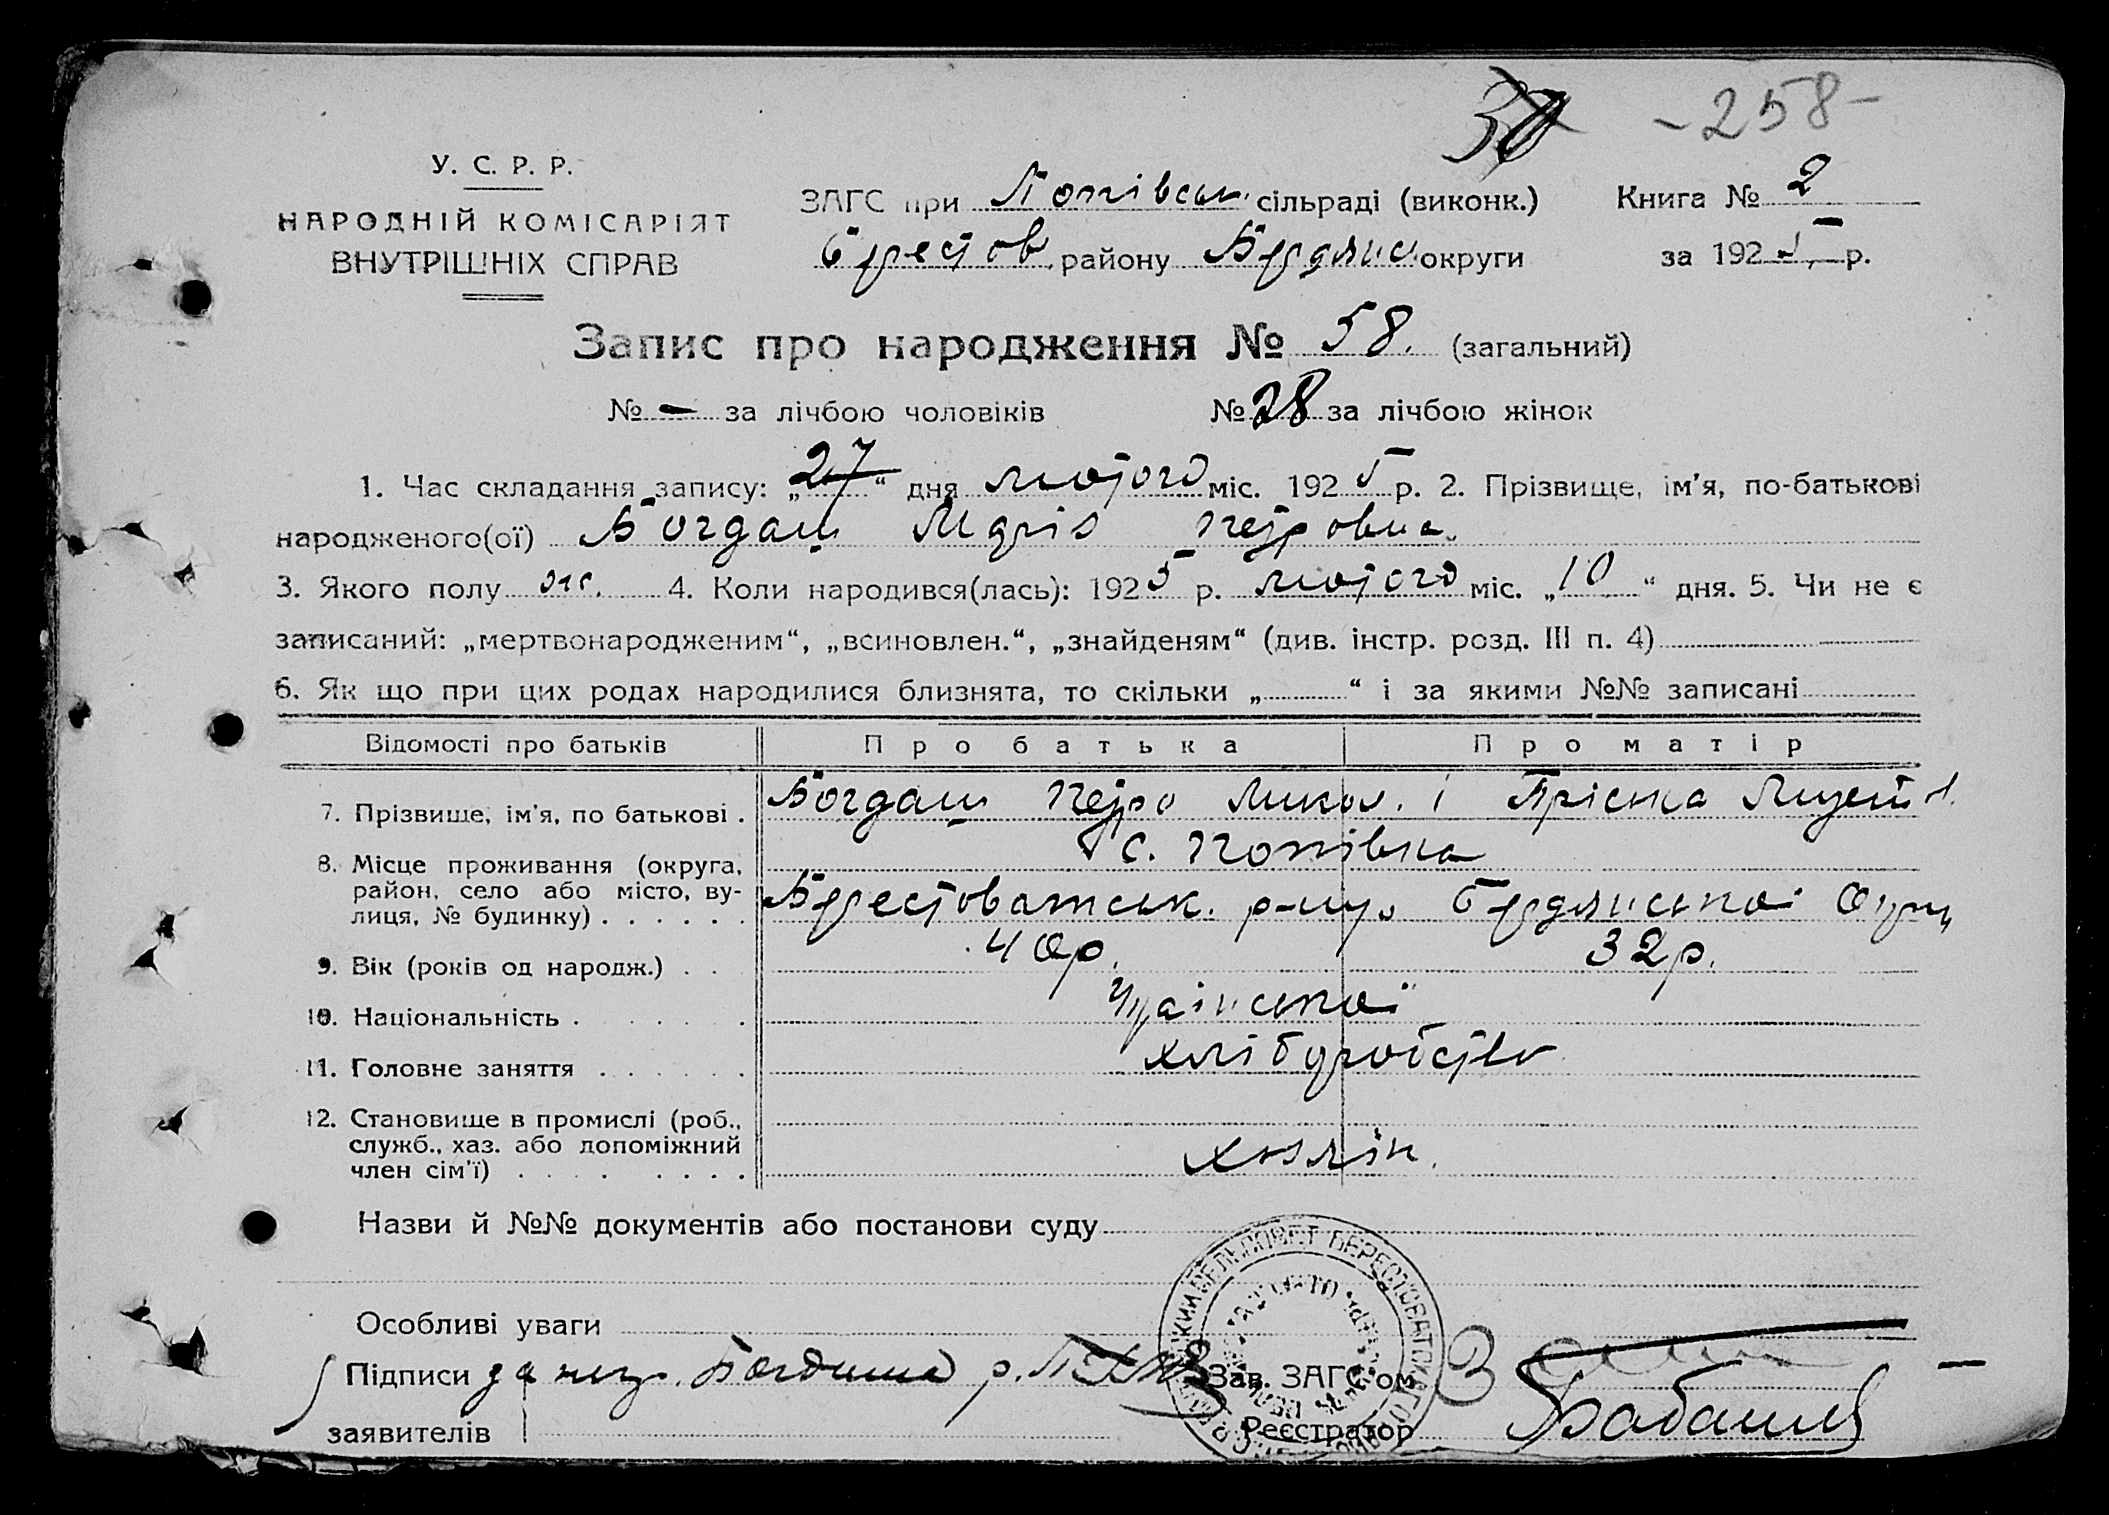 30 -258-
У. С. Р. Р.
НАРОДНІЙ КОМІСАРІЯТ
ВНУТРІШНІХ СПРАВ
ЗАГС при Попівськ. сільраді (виконк.) Книга № 2
Берестов. району Бердянс. округи за 1925 р.
Запис про народження № 58. (загальний)
№ — за лічбою чоловіків № 28 за лічбою жінок
1. Час складання запису: „27“ дня лютого міс. 1925 р. 2. Прізвище, ім'я, по-батькові
народженого(ої) Богдан Марія Петровна
3. Якого полу ж. 4. Коли народився(лась): 1925 р. лютого міс. „10“ дня. 5. Чи не є
записаний: „мертвонародженим“, „всиновлен.“, „знайденям“ (див. інстр. розд. III п. 4)
6. Як що при цих родах народилися близнята, то скільки „ “ і за якими №№ записані
Відомості про батьків Про батька Про матір
7. Прізвище, ім'я, по батькові . Богдан Петро Микол. і Пріська
8. Місце проживання (округа, с. Попівка
район, село або місто, ву-
лиця, № будинку) . . . . . . Берестоватськ. р-ну Бердянської Окр.
9. Вік (років од народж.) . . 40 р. 32 р.
10. Національність . . . . . . Української
11. Головне заняття . . . . . . хліборобство
12. Становище в промислі (роб.,
служб., хаз. або допоміжний
член сім'ї) . . . . . . . . хазяїн.
Назви й №№ документів або постанови суду
Особливі уваги
Підписи за Богдана р. Зав. ЗАГС'ом
заявителів Реєстратор